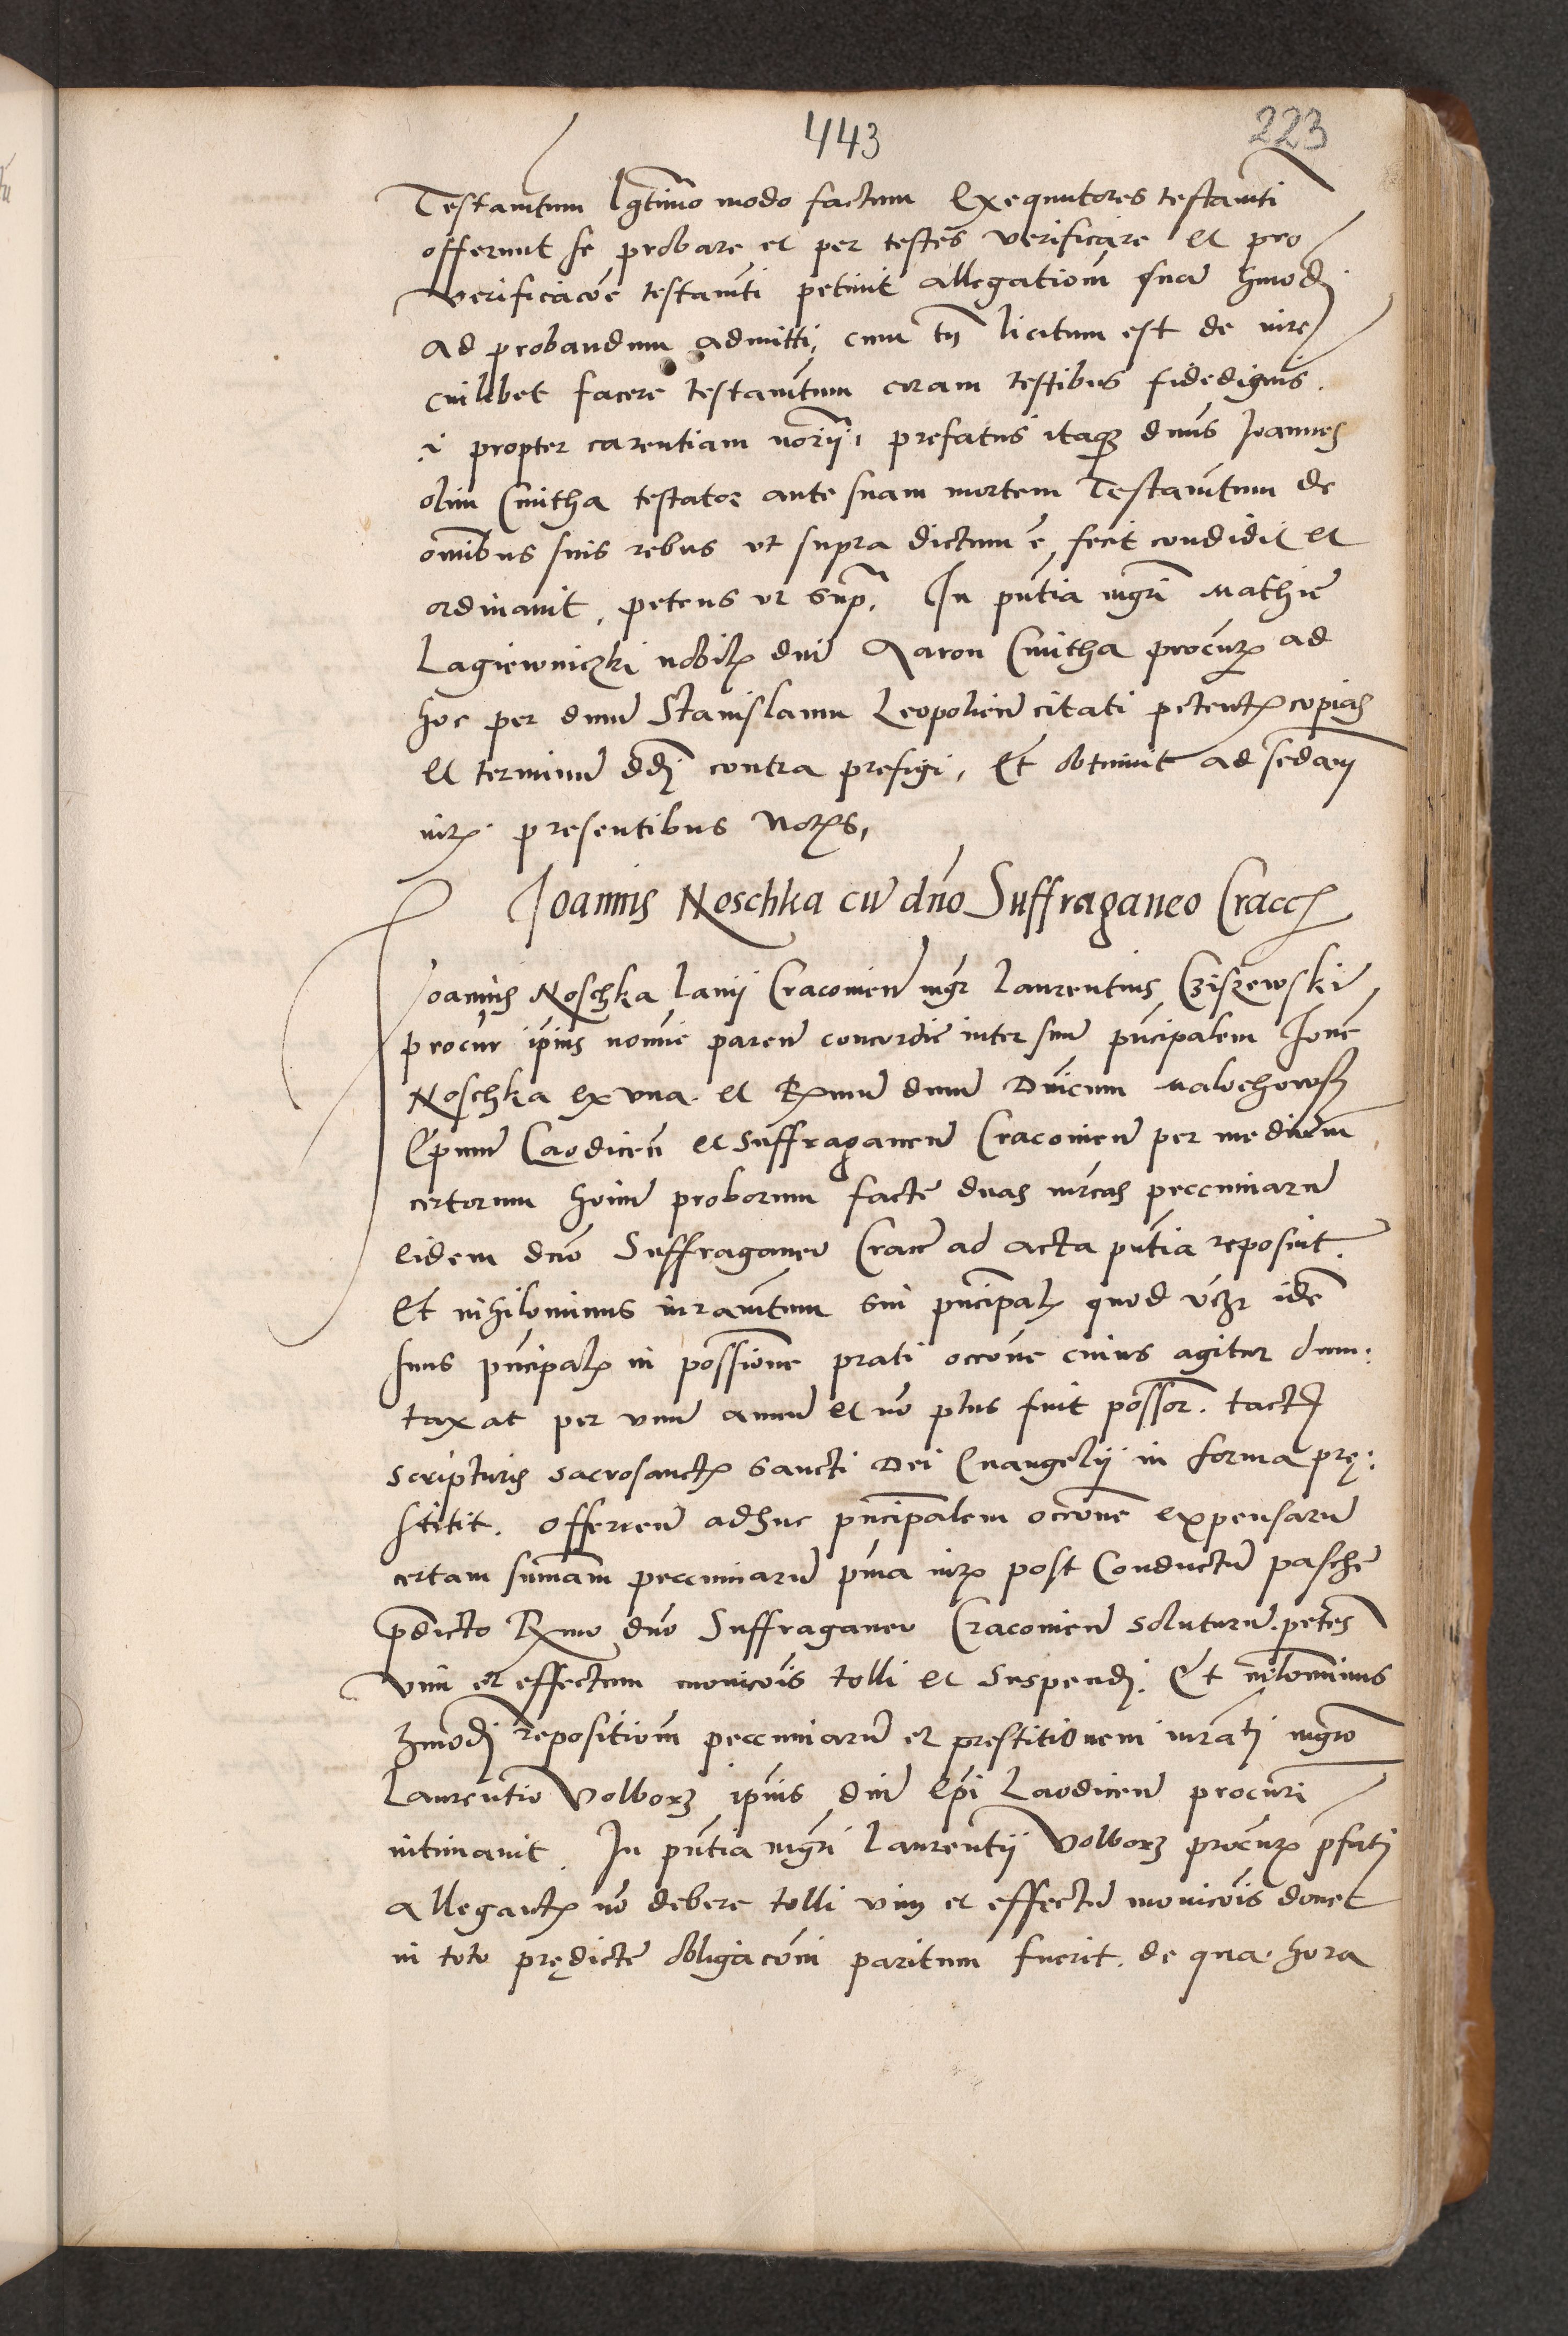 443
223
Testamtum lgtimo modo factum Exequutores testamti
offerunt se probare et per testes verificare et pro
verificacoe testamti petiuit allegationem sua hmodi
ad probandum admitti, cum tn licitum est de iure
cuilibet facere testamtum coram testibus fidedignis.
i propter carentiam norij, prefatus itaq dnus Joannes
olim Cmitha testator ante suam mortem Testamtum de
omibus suis rebus vt supra dictum e, fecit condidit et
ordinauit, petens vt sup. In pntia mgri Mathie
Lagiewniczki nobilis dni Aaron Cmitha procur ad
hoc per dnum Stanislaum Leopolien citati petentis copias
et terminu ddi contra prefigi, Et obtinuit ad sedam
iur. presentibus Noris,
Joannis Noschka cu dno Suffraganeo Cracc
Joannis Noschka lanij Cracouien mgr Laurentius Cziszewski
procur ipius nomie paren concordie inter suu pncipalem Jone
Noschka ex vna. et Rmum dnum Dnicum Malochowsz
Epum Laodicen et Suffraganeu Cracouien per medium
certorum hoim proborum facte duas mrcas peccuniaru
eidem dno Suffraganeo Cracc ad acta pntia reposuit.
Et nihilominus iuramtum sui pncipalis quod vcz ide
suus pncipalis in possione prati occone cuius agitur dum:
taxat per vnu annu et no plus fuit possor. tactis
scripturis sacrosanctis Sancti Dei Euangelij in forma prę:
stitit. offeren adhuc pncipalem occone expensaru
certam summam peccuniaru pma iur post Conductu pasche
pdicto Rmo dno Suffraganeo Cracouien soluturu. petes
vim et effectum monicois tolli et suspendi. Et nilominus
hmodi repositiom peccuniaru et prestitionem iurati mgro
Laurentio Volborz ipius dni Epi Laodicen procuri
intimauit. In pntia mgri Laurentij Volborz procur pfati
allegantis no debere tolli vim et effectu monicois donec
in toto prędicte obligaconi paritum fuerit. de qua. hora